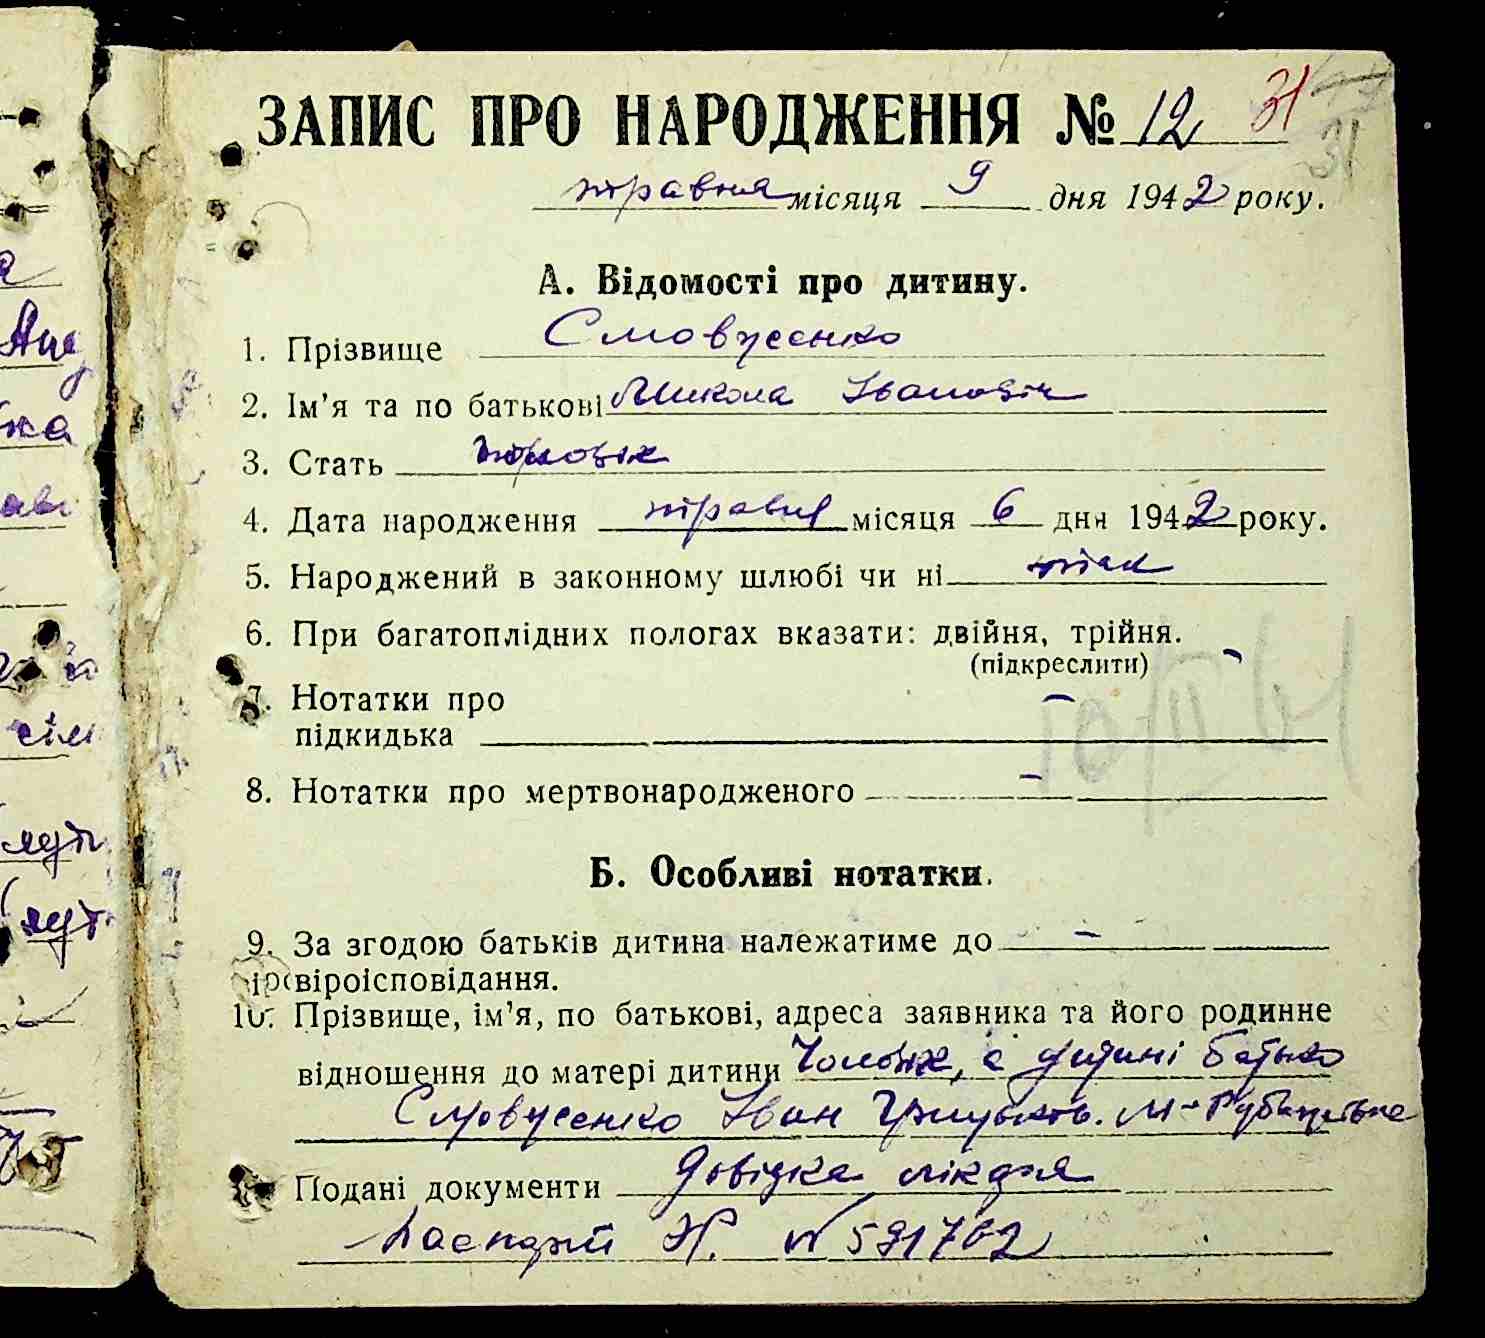 ЗАПИС ПРО НАРОДЖЕННЯ № 12 31
31
травня місяця 9 дня 1942 року.
А. Відомості про дитину.
1. Прізвище Смовусенко
2. Ім'я та по батькові Микола Іванович
3. Стать чоловік
4. Дата народження травня місяця 6 дня 1942 року.
5. Народжений в законному шлюбі чи ні так
6. При багатоплідних пологах вказати: двійня, трійня. –
(підкреслити)
7. Нотатки про –
підкидька
8. Нотатки про мертвонародженого –
Б. Особливі нотатки.
9. За згодою батьків дитина належатиме до –
віроісповідання.
10. Прізвище, ім'я, по батькові, адреса заявника та його родинне
відношення до матері дитини Чоловік, є дитині батько
Смовусенко Іван Грицьков.
Подані документи довідка лікаря
паспорт Н. № 591762